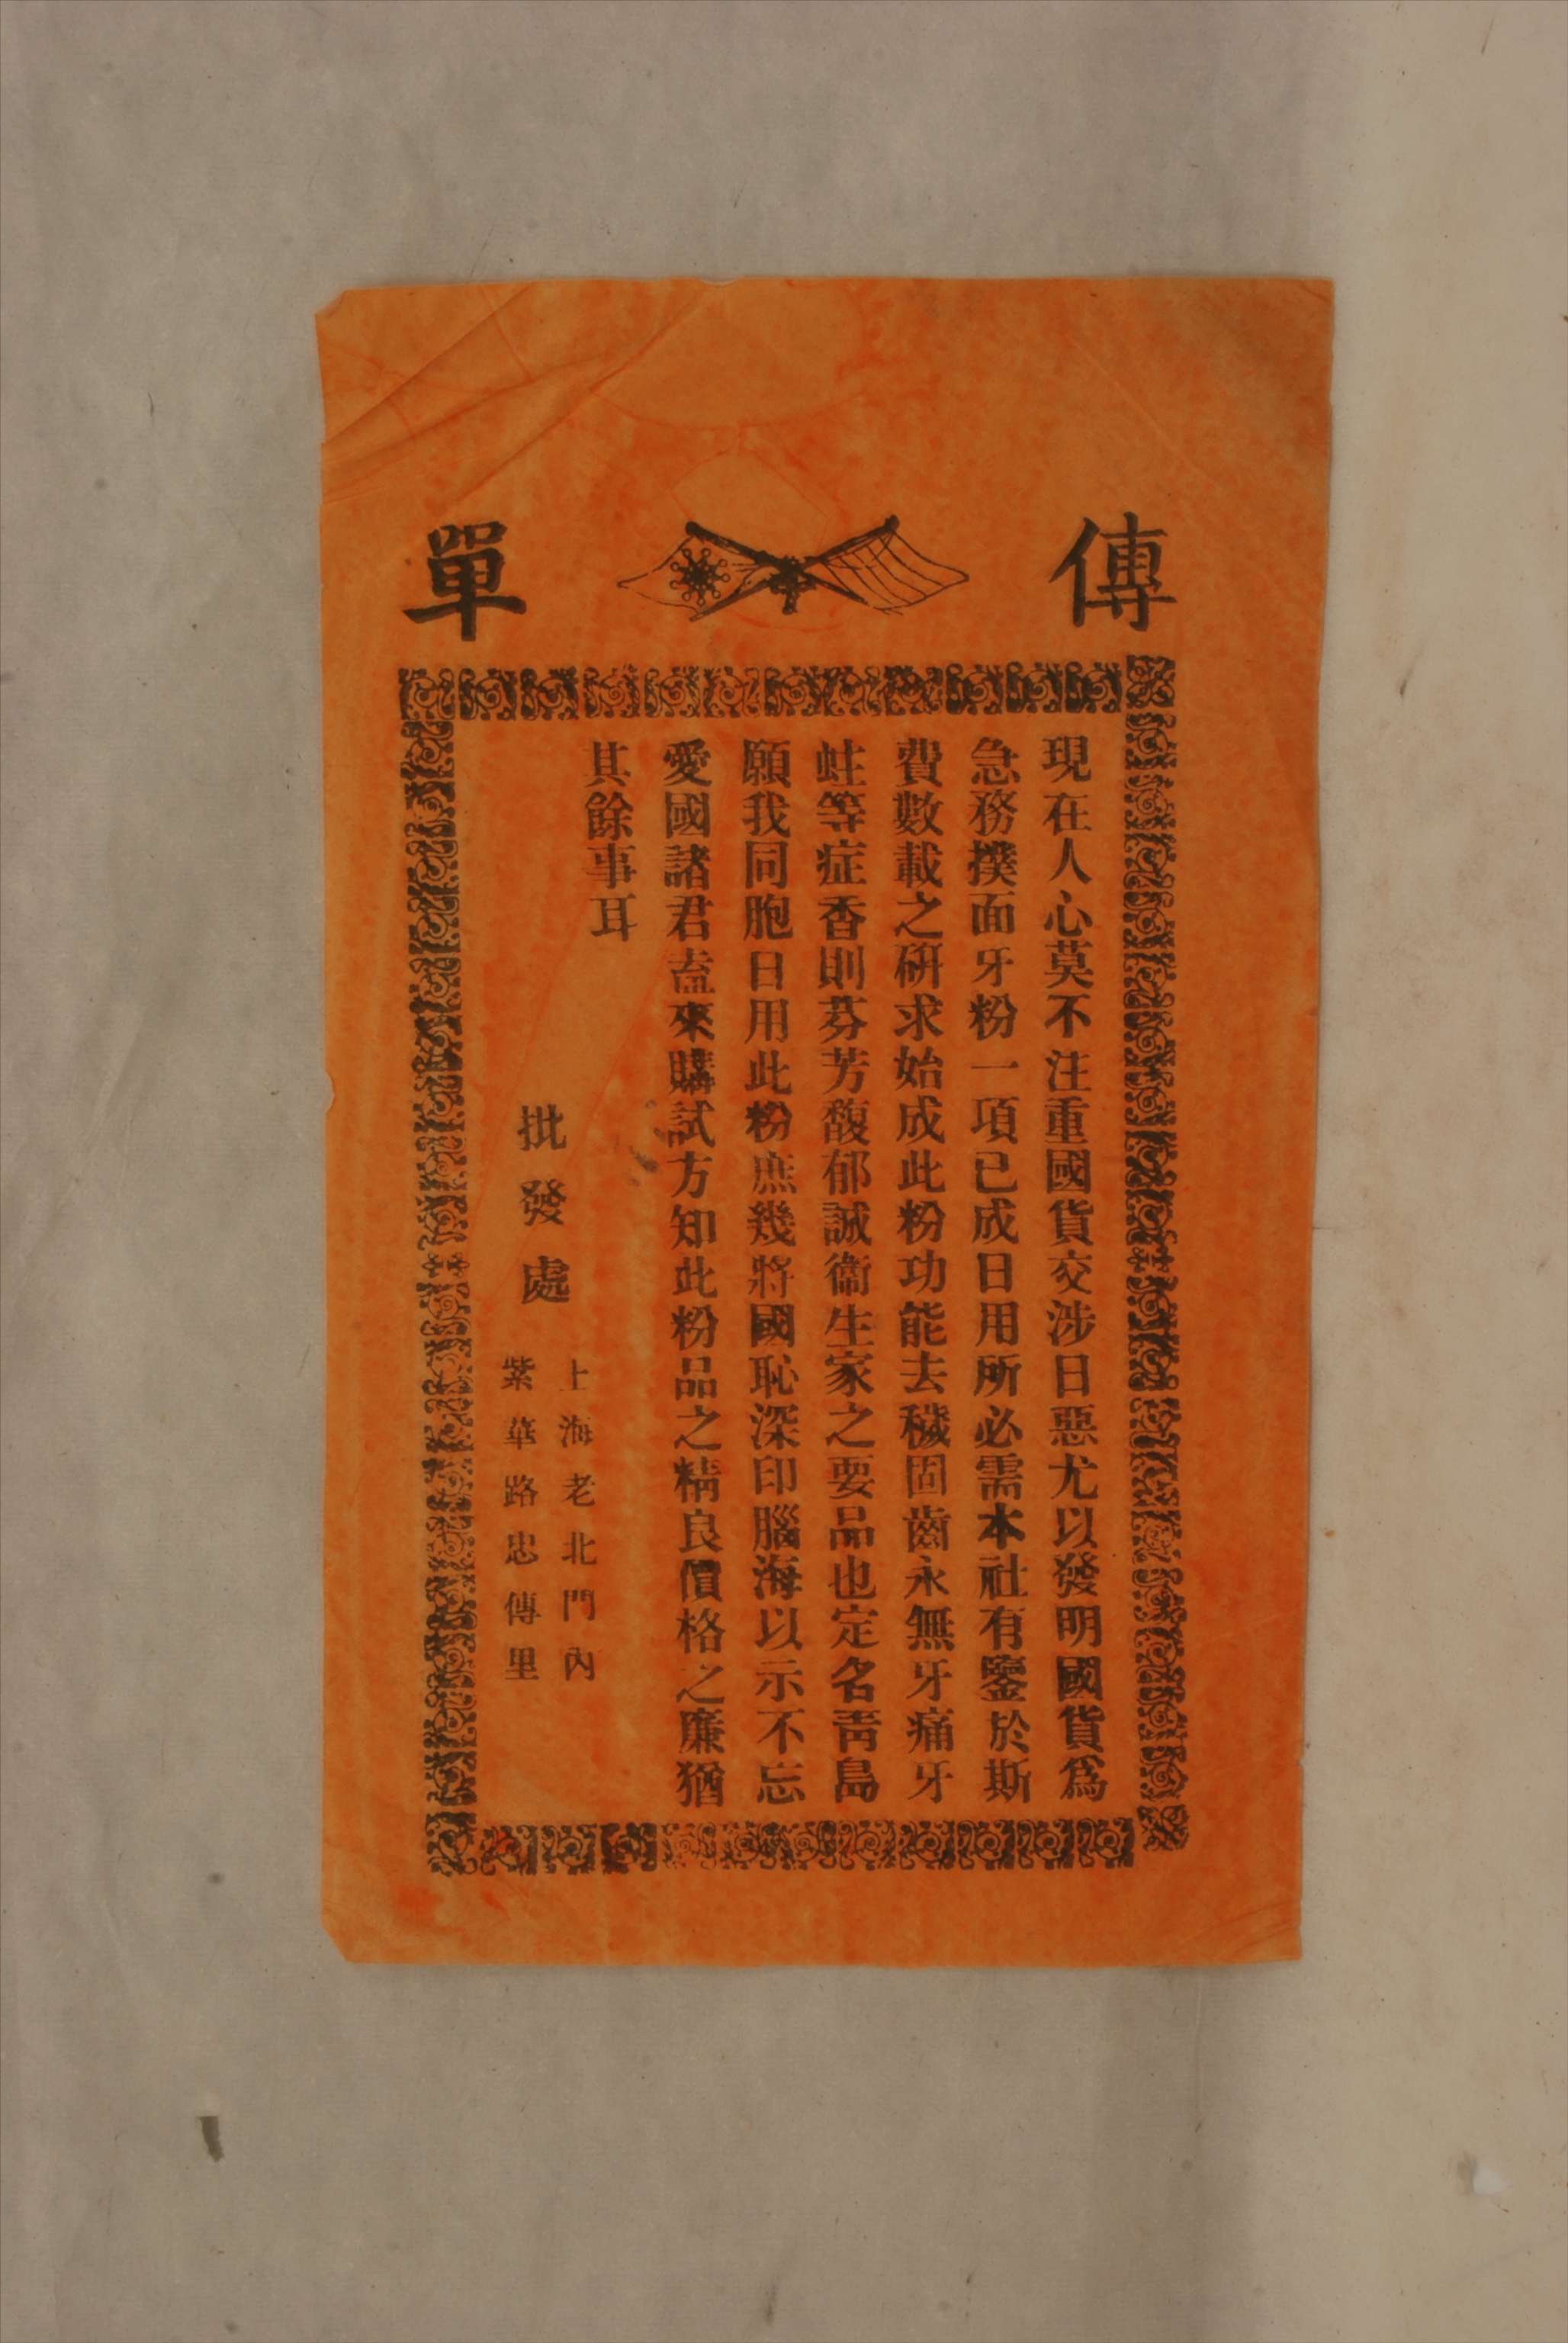 傳單
現在人心莫不注重國貨交涉日惡尤以發明國貨爲
急務撲面牙粉一項已成日用所必需本社有鑒於斯
費數載之硏求始成此粉功能去穢固齒永無牙痛牙
蛀等症香則芬芳馥郁誠衞生家之要品也定名靑島
願我同胞日用此粉庶幾將國恥深印腦海以示不忘
愛國諸君盍來購試方知此粉品之精良價格之廉猶
其餘事耳
批發處
上海老北門內
紫華路忠傳里